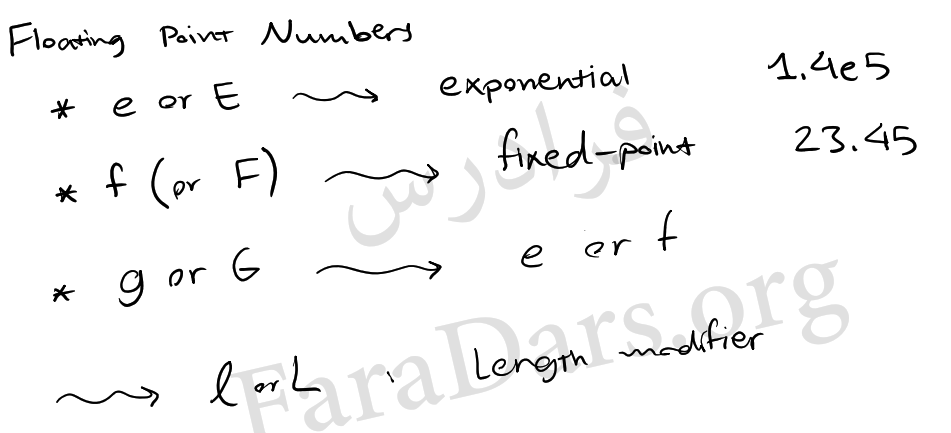 Floating Point Numbers
* e or E → exponential 1.4e5
* f (or F) → fixed-point 23.45
* g or G → e or f
→ l or L , Length modifier
فرادرس
FaraDars.org